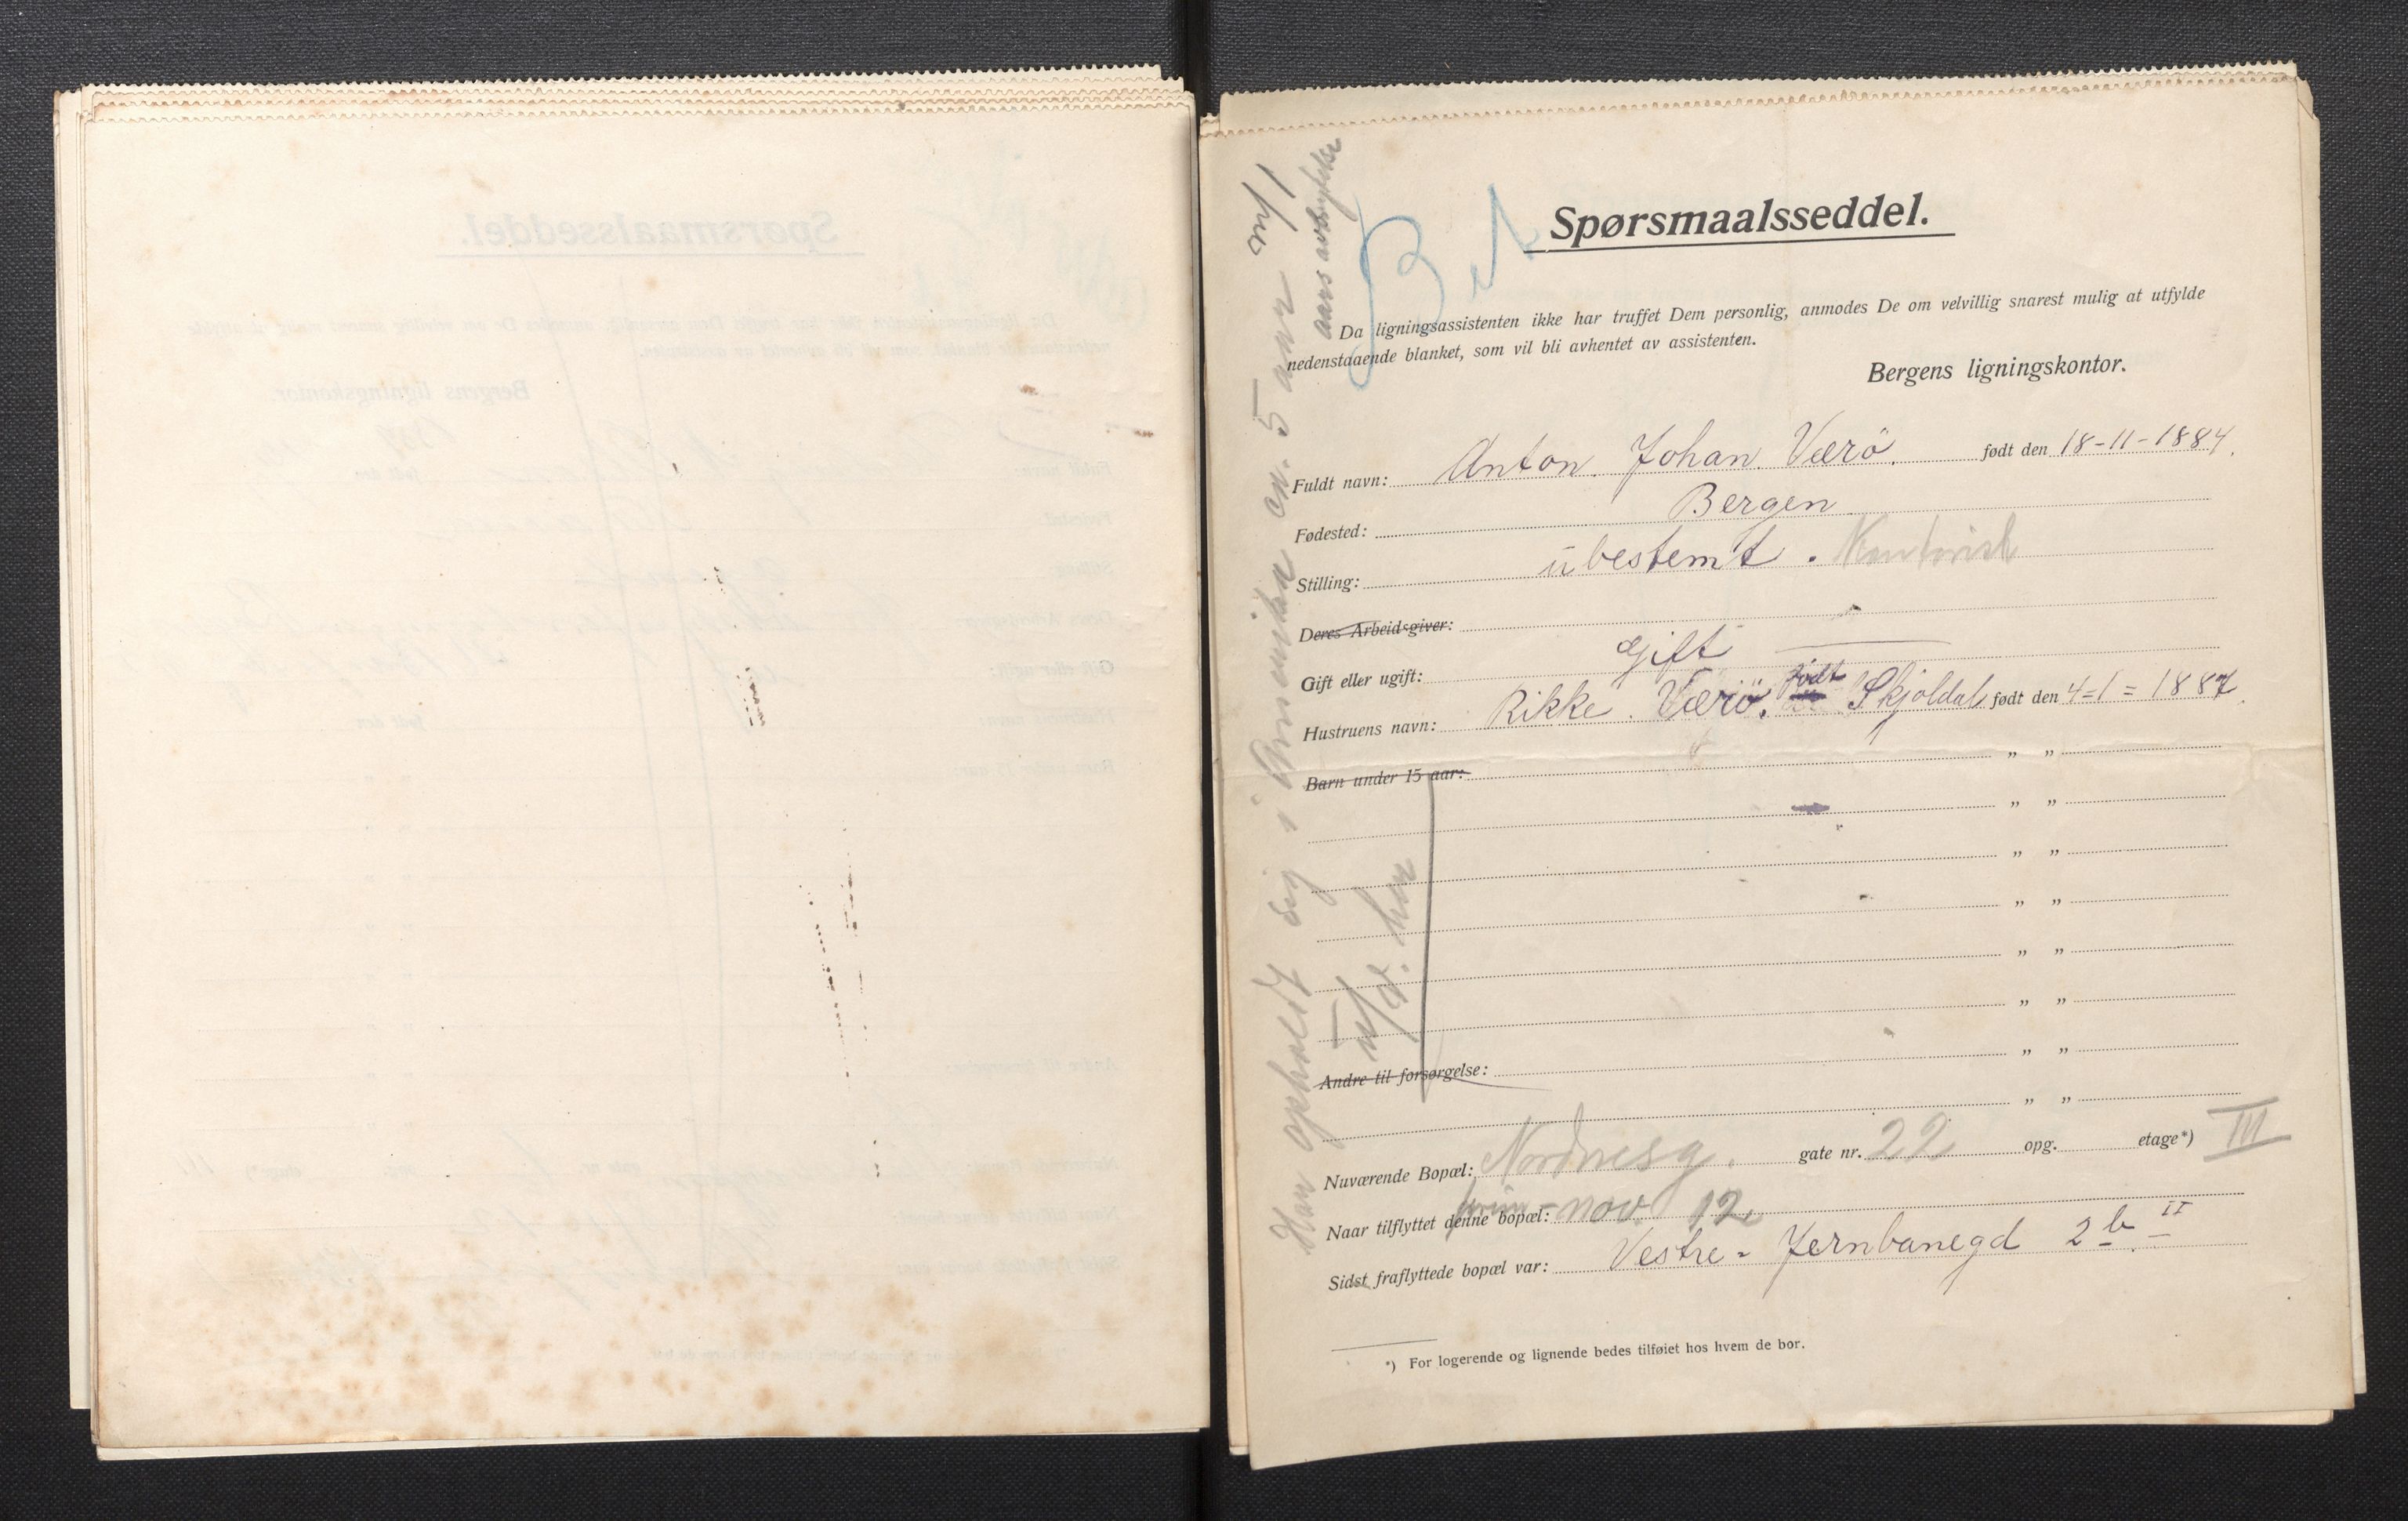 Spørsmaalsseddel.
Da ligningsassistenten ikke har truffet Dem personlig, anmodes De om velvillig snarest mulig at utfylde
nedenstaaende blanket, som vil bli avhentet av assistenten.
Bergens ligningskontor.
Fuldt navn: Anton Johan Værö. født den 18-11-1884.
Fødested: Bergen
Stilling: ubestemt. Kontorist
Deres Arbeidsgiver:
Gift eller ugift: Gift
Hustruens navn: Rikke Værö. født Skjoldal født den 4=1=1887.
Barn under 15 aar: „ „
„ „
„ „
„ „
„ „
„ „
„ „
Andre til forsørgelse:
„ „
Nuværende Bopæl: Nordnesg. gate nr. 22 opg. etage*) III
Naar tilflyttet denne bopæl: nov 12
Sidst fraflyttede bopæl var: Vestre = Jernbanegd 2 b II
*) For logerende og lignende bedes tilføiet hos hvem de bor.
Han opholdt sig i Amerika en. 5 aar
har